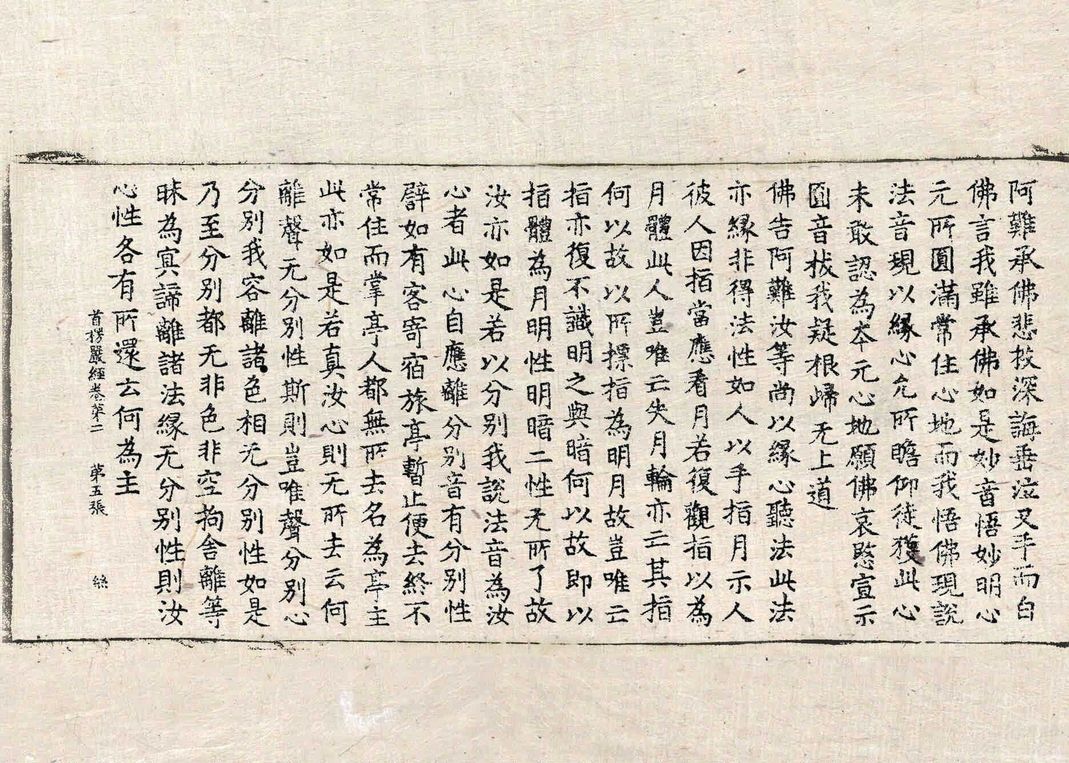 阿難承佛悲救深誨垂泣叉手而白
佛言我雖承佛如是妙音悟妙明心
元所圓滿常住心地而我悟佛現說
法音現以緣心允所瞻仰徒獲此心
未敢認為夲元心地願佛哀愍宣示
圓音拔我疑根歸无上道
佛告阿難汝等尚以緣心聽法此法
亦緣非得法性如人以手指月示人
彼人因指當應看月若復觀指以為
月體此人豈唯亡失月輪亦亡其指
何以故以所摽指為明月故豈唯亡
指亦復不識明之與暗何以故即以
指體為月明性明暗二性无所了故
汝亦如是若以分別我說法音為汝
心者此心自應離分別音有分別性
譬如有客寄宿旅亭暫止便去終不
常住而掌亭人都無所去名為亭主
此亦如是若真汝心則无所去云何
離聲无分別性斯則豈唯聲分別心
分別我容離諸色相无分別性如是
乃至分別都无非色非空拘舍離等
昧為冥諦離諸法緣无分別性則汝
心性各有所還云何為主
首楞嚴經卷第二 第五張 絲